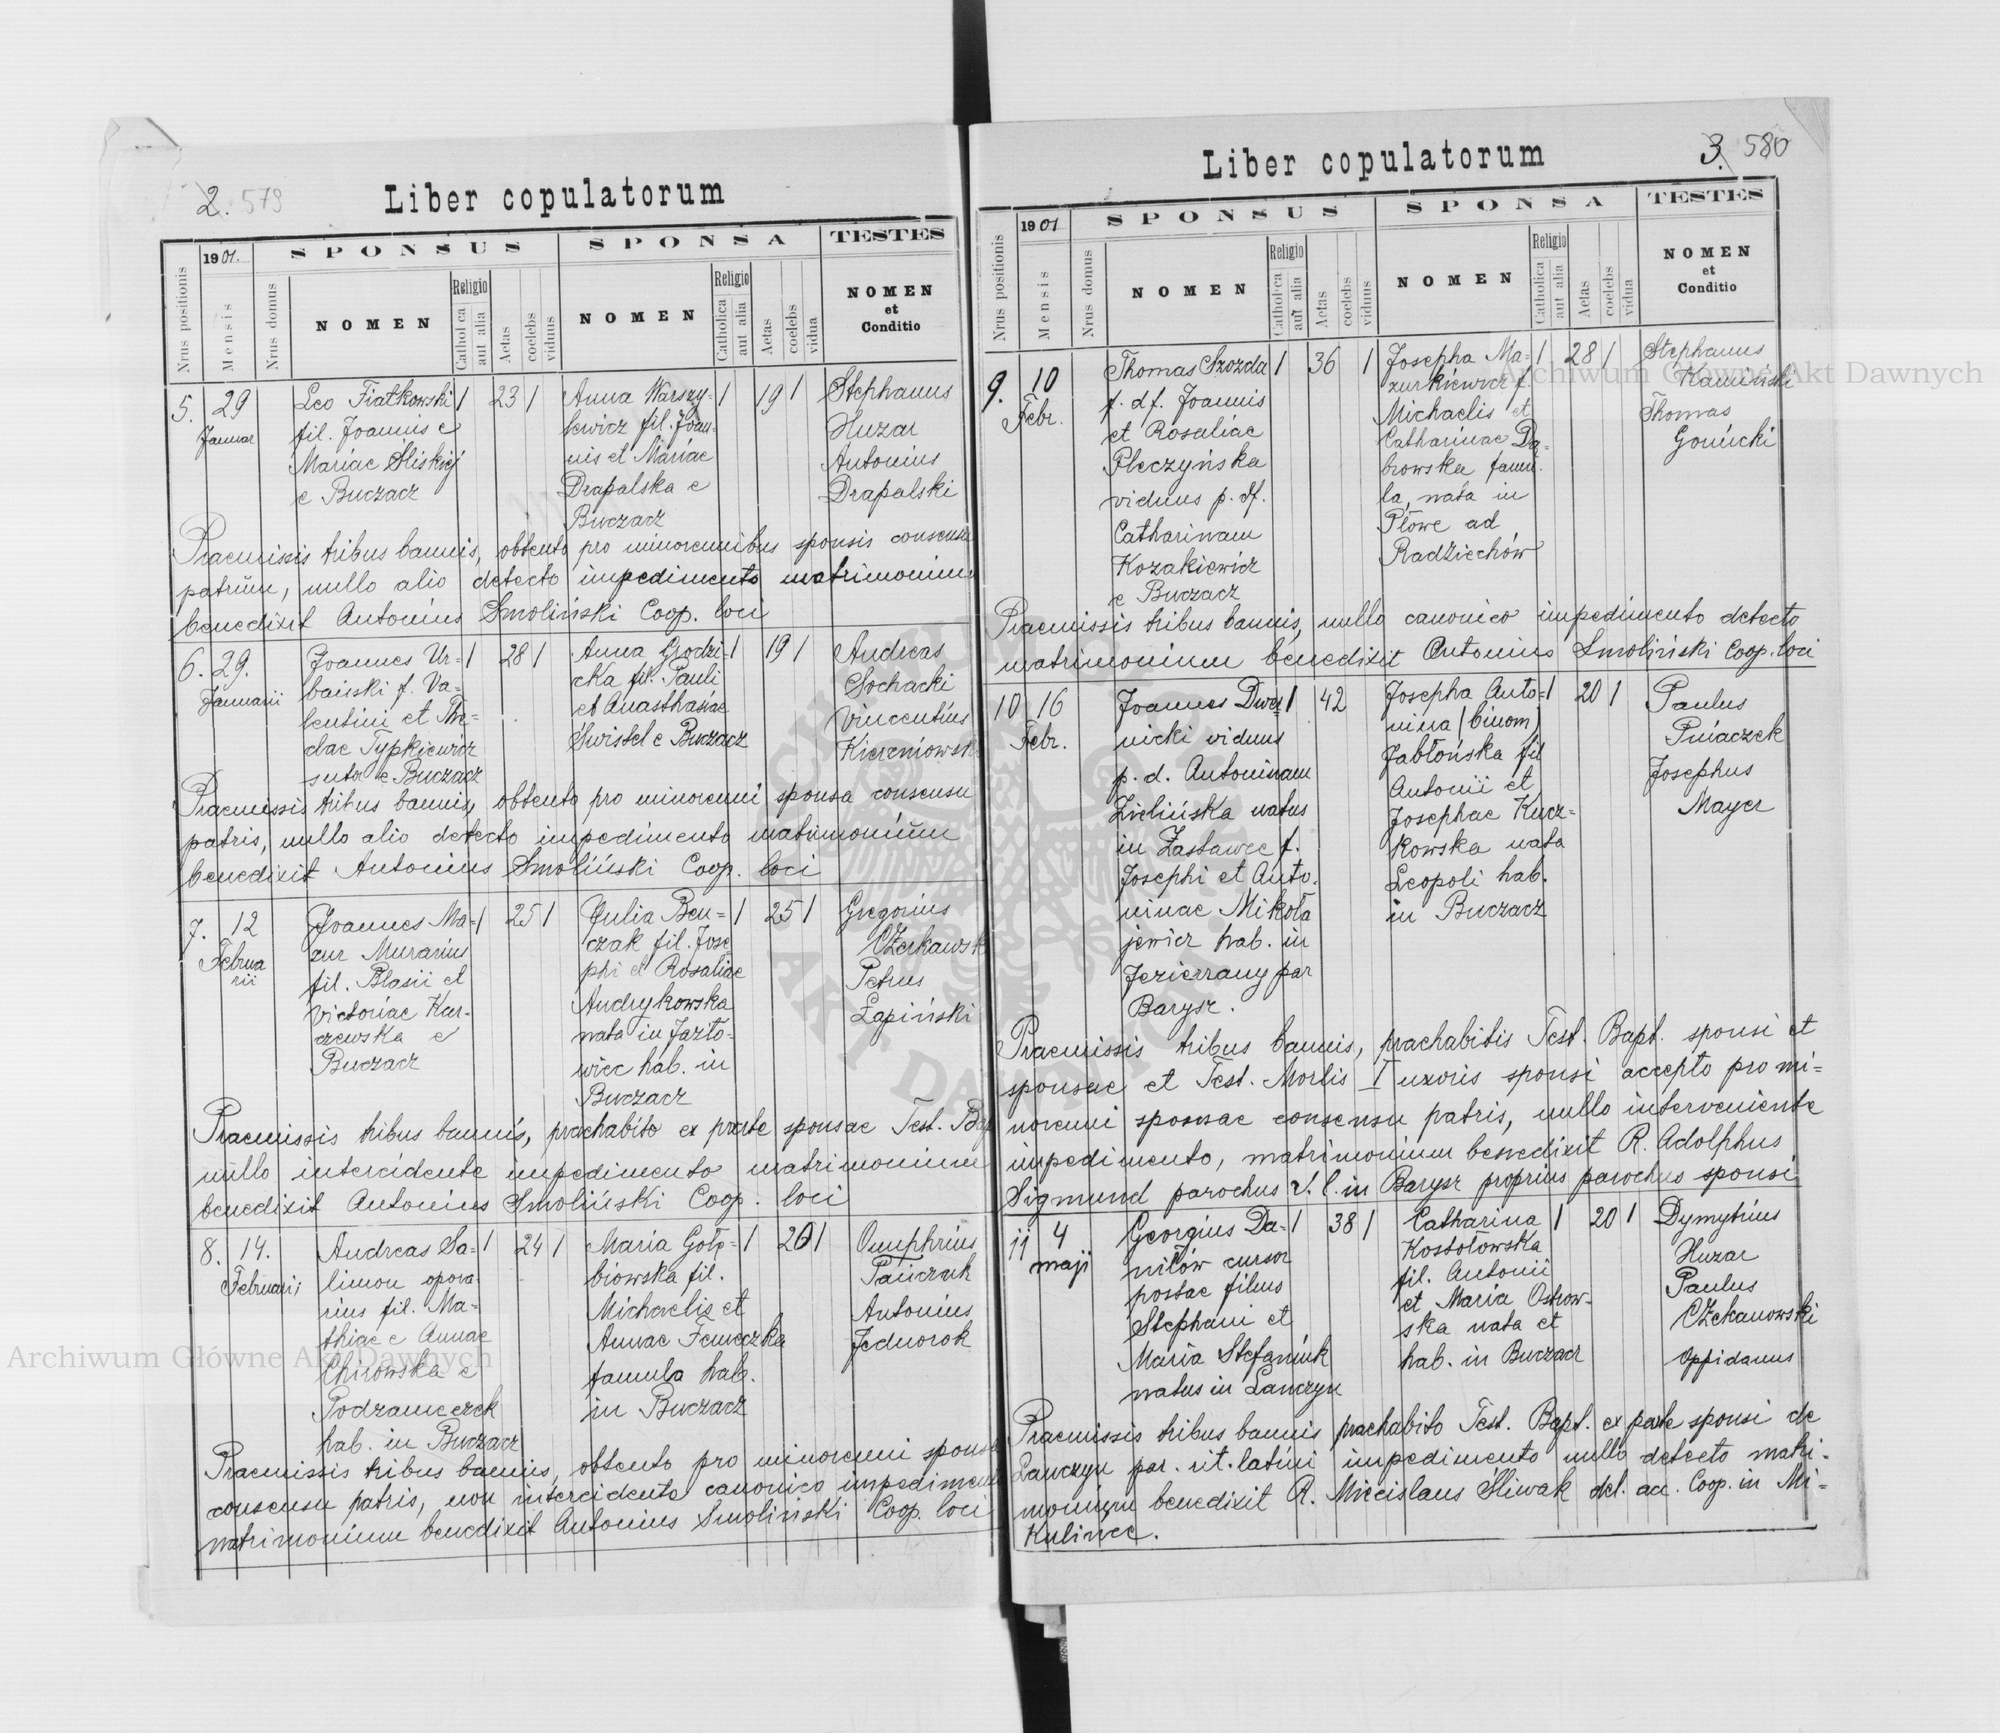 2. 579
Liber copulatorum
Nrus positionis
1901.
Mensis
Nrus domus
SPONSUS
NOMEN
Religio
Catholica
aut alia
Aetas
coelebs
viduus
SPONSA
NOMEN
Religio
Catholica
aut alia
Aetas
coelebs
vidua
TESTES
NOMEN
et
Conditio
5. 29 Januar
Leo Fiatkowski
fil. Joannis e
Mariae Śliskiej
e Buczacz
1 23 1
Anna Warszy-
lewicz fil. Joan-
nis et Mariae
Drapalska e
Buczacz
1 19 1
Stephanus
Huzar
Antonius
Drapalski
Praemissis tribus bannis, obtento pro minorennibus sponsis consensu
patrum, nullo alio detecto impedimento matrimonium
benedixit Antonius Smoliński Coop. loci
6. 29. Januarii
Joannes Ur=
bański f. Va-
lentini et
Typkiewicz
sutor e Buczacz
1 28 1
Anna Grodzi-
cka fil. Pauli
et Anasthasiae
Świstel e Buczacz
1 19 1
Andreas
Sochacki
Vincentius
Praemissis tribus bannis, obtento pro minorenni sponsa consensu
patris, nullo alio detecto impedimento matrimonium
benedixit Antonius Smoliński Coop. loci
7. 12
Februa
rii
Joannes Ma-
zur Murarius
fil. Blasii et
Victoriae Kar-
czewska e
Buczacz
1 25 1
Julia Ben=
czak fil. Jose
phi et Rosaliae
Andrykowska
nata in Jazło-
wiec hab. in
Buczacz
1 25 1
Gregorius
Czerkawsk
Petrus
Łapiński
Praemissis tribus bannis, praehabito ex parte sponsae Test. Bap
nullo intercidente impedimento matrimonium
benedixit Antonius Smoliński Coop. loci
8. 14. Februarii
Andreas Sa-
limon opera-
rius fil. Ma=
thiae e Annae
Chirowska e
Podzameczek
hab. in Buczacz
1 24 1
Maria Gołę=
biowska fil.
Michaelis et
Annae Femeczka
famula hab.
in Buczacz
1 20 1
Onuphrius
Pańczuk
Antonius
Jednorok
Praemissis tribus bannis, obtento pro minorenni sponsa
consensu patris, non intercidente canonico impedimento
matrimonium benedixit Antonius Smoliński Coop. loci
3. 580
Liber copulatorum
Nrus positionis
1901
Mensis
Nrus domus
SPONSUS
NOMEN
Religio
Catholica
aut alia
Aetas
coelebs
viduus
SPONSA
NOMEN
Religio
Catholica
aut alia
Aetas
coelebs
vidua
TESTES
NOMEN
et
Conditio
9. 10 Febr.
Thomas Szozda
f. df. Joannis
et Rosaliae
Pleczyńska
viduus p. df.
Catharinam
Kozakiewicz
e Buczacz
1 36 1
Josepha Ma=
zurkiewicz f.
Michaelis et
Catharinae Dą-
browska famu-
la, nata in
Płowe ad
Radziechów
1 28 1
Stephanus
Kamiński
Thomas
Gonicki
Praemissis tribus bannis, nullo canonico impedimento detecto
matrimonium benedixit Antonius Smoliński Coop. loci
10 16 Febr.
Joannes Dwer
nicki viduus
p. d. Antoninam
Zielińska natus
in Zastawce f.
Josephi et Anto-
ninae Mikoła
jewicz hab. in
Jezierzany par
Barysz.
1 42
Josepha Anto=
nina (binom)
Jabłońska fil
Antonii et
Josephae Kucz=
kowska nata
Leopoli hab.
in Buczacz
1 20 1
Paulus
Pniaczek
Josephus
Mayer
Praemissis tribus bannis, praehabitis Test. Bapt. sponsi et
sponsae et Test. Mortis I uxoris sponsi accepto pro mi=
norenni sponsae consensu patris, nullo interveniente
impedimento, matrimonium benedixit R. Adolphus
Sigmund parochus r. l. in Barysz proprius parochus sponsi
11 4 maji
Georgius Da=
niłów cursor
postae filius
Stephani et
Maria Stefaniuk
natus in Lanczyn
1 38 1
Catharina
Kostołowska
fil. Antonii
et Maria Ostrow-
ska nata et
hab. in Buczacz
1 20 1
Dymytrius
Huzar
Paulus
Czekanowski
oppidanus
Praemissis tribus bannis praehabito Test. Bapt. ex parte sponsi de
Lanczyn par. rit. latini impedimento nullo detecto matri-
monium benedixit R. Miecislaus Śliwak del. ac. Coop. in Mi=
kulince.
Archiwum Główne Akt Dawnych
Archiwum Główne Akt Dawnych